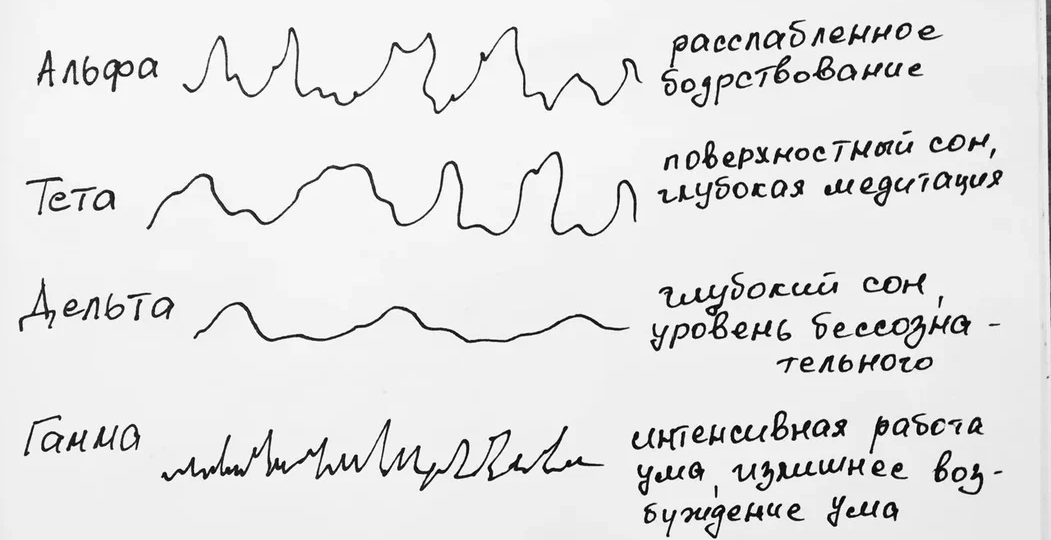 Альфа
расслабленное
бодрствование
Тета
поверхностный сон,
глубокая медитация
Дельта
глубокий сон,
уровень бессозна-
тельного
Гамма
интенсивная работа
ума, излишнее воз-
буждение ума